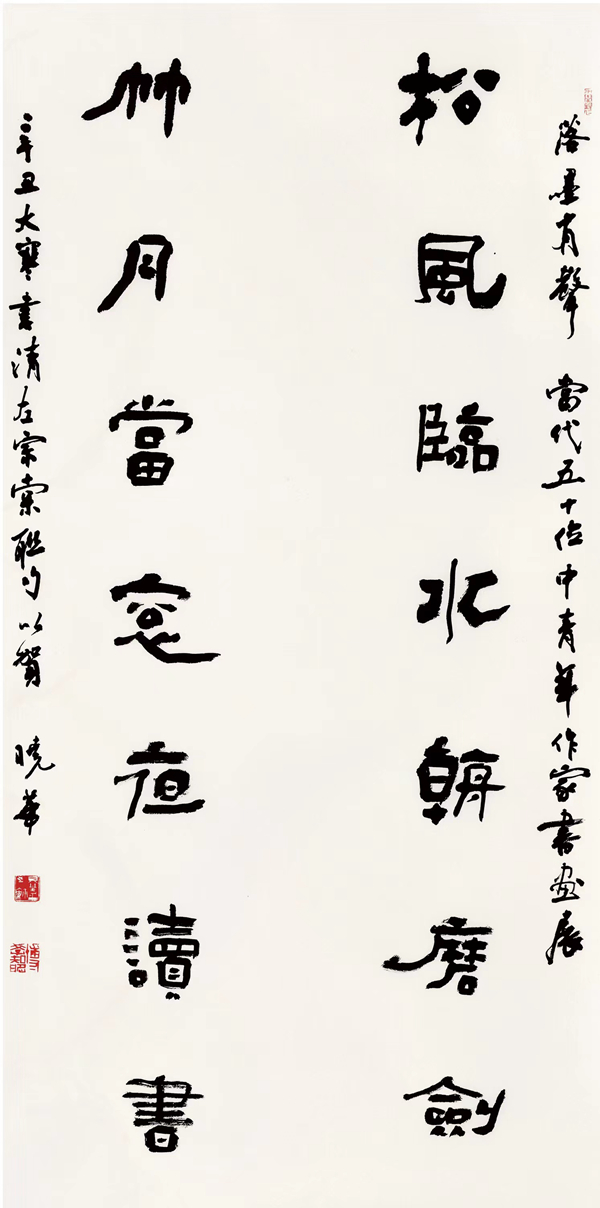 落墨有聲 當代五十位中青年作家書畫展
松風臨水朝磨劍
竹月當窓夜讀書
辛丑大寒書清左宗棠聯句以賀 曉華